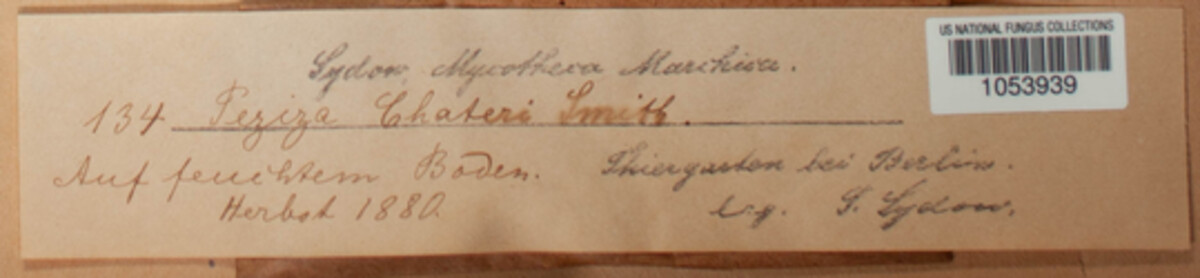 US NATIONAL FUNGUS COLLECTIONS
1053939
Sydow, Mycotheca Marchica.
134 Peziza Chateri Smith.
Auf feuchtem Boden. Thiergarten bei Berlin.
Herbst 1880. leg. P. Sydow.